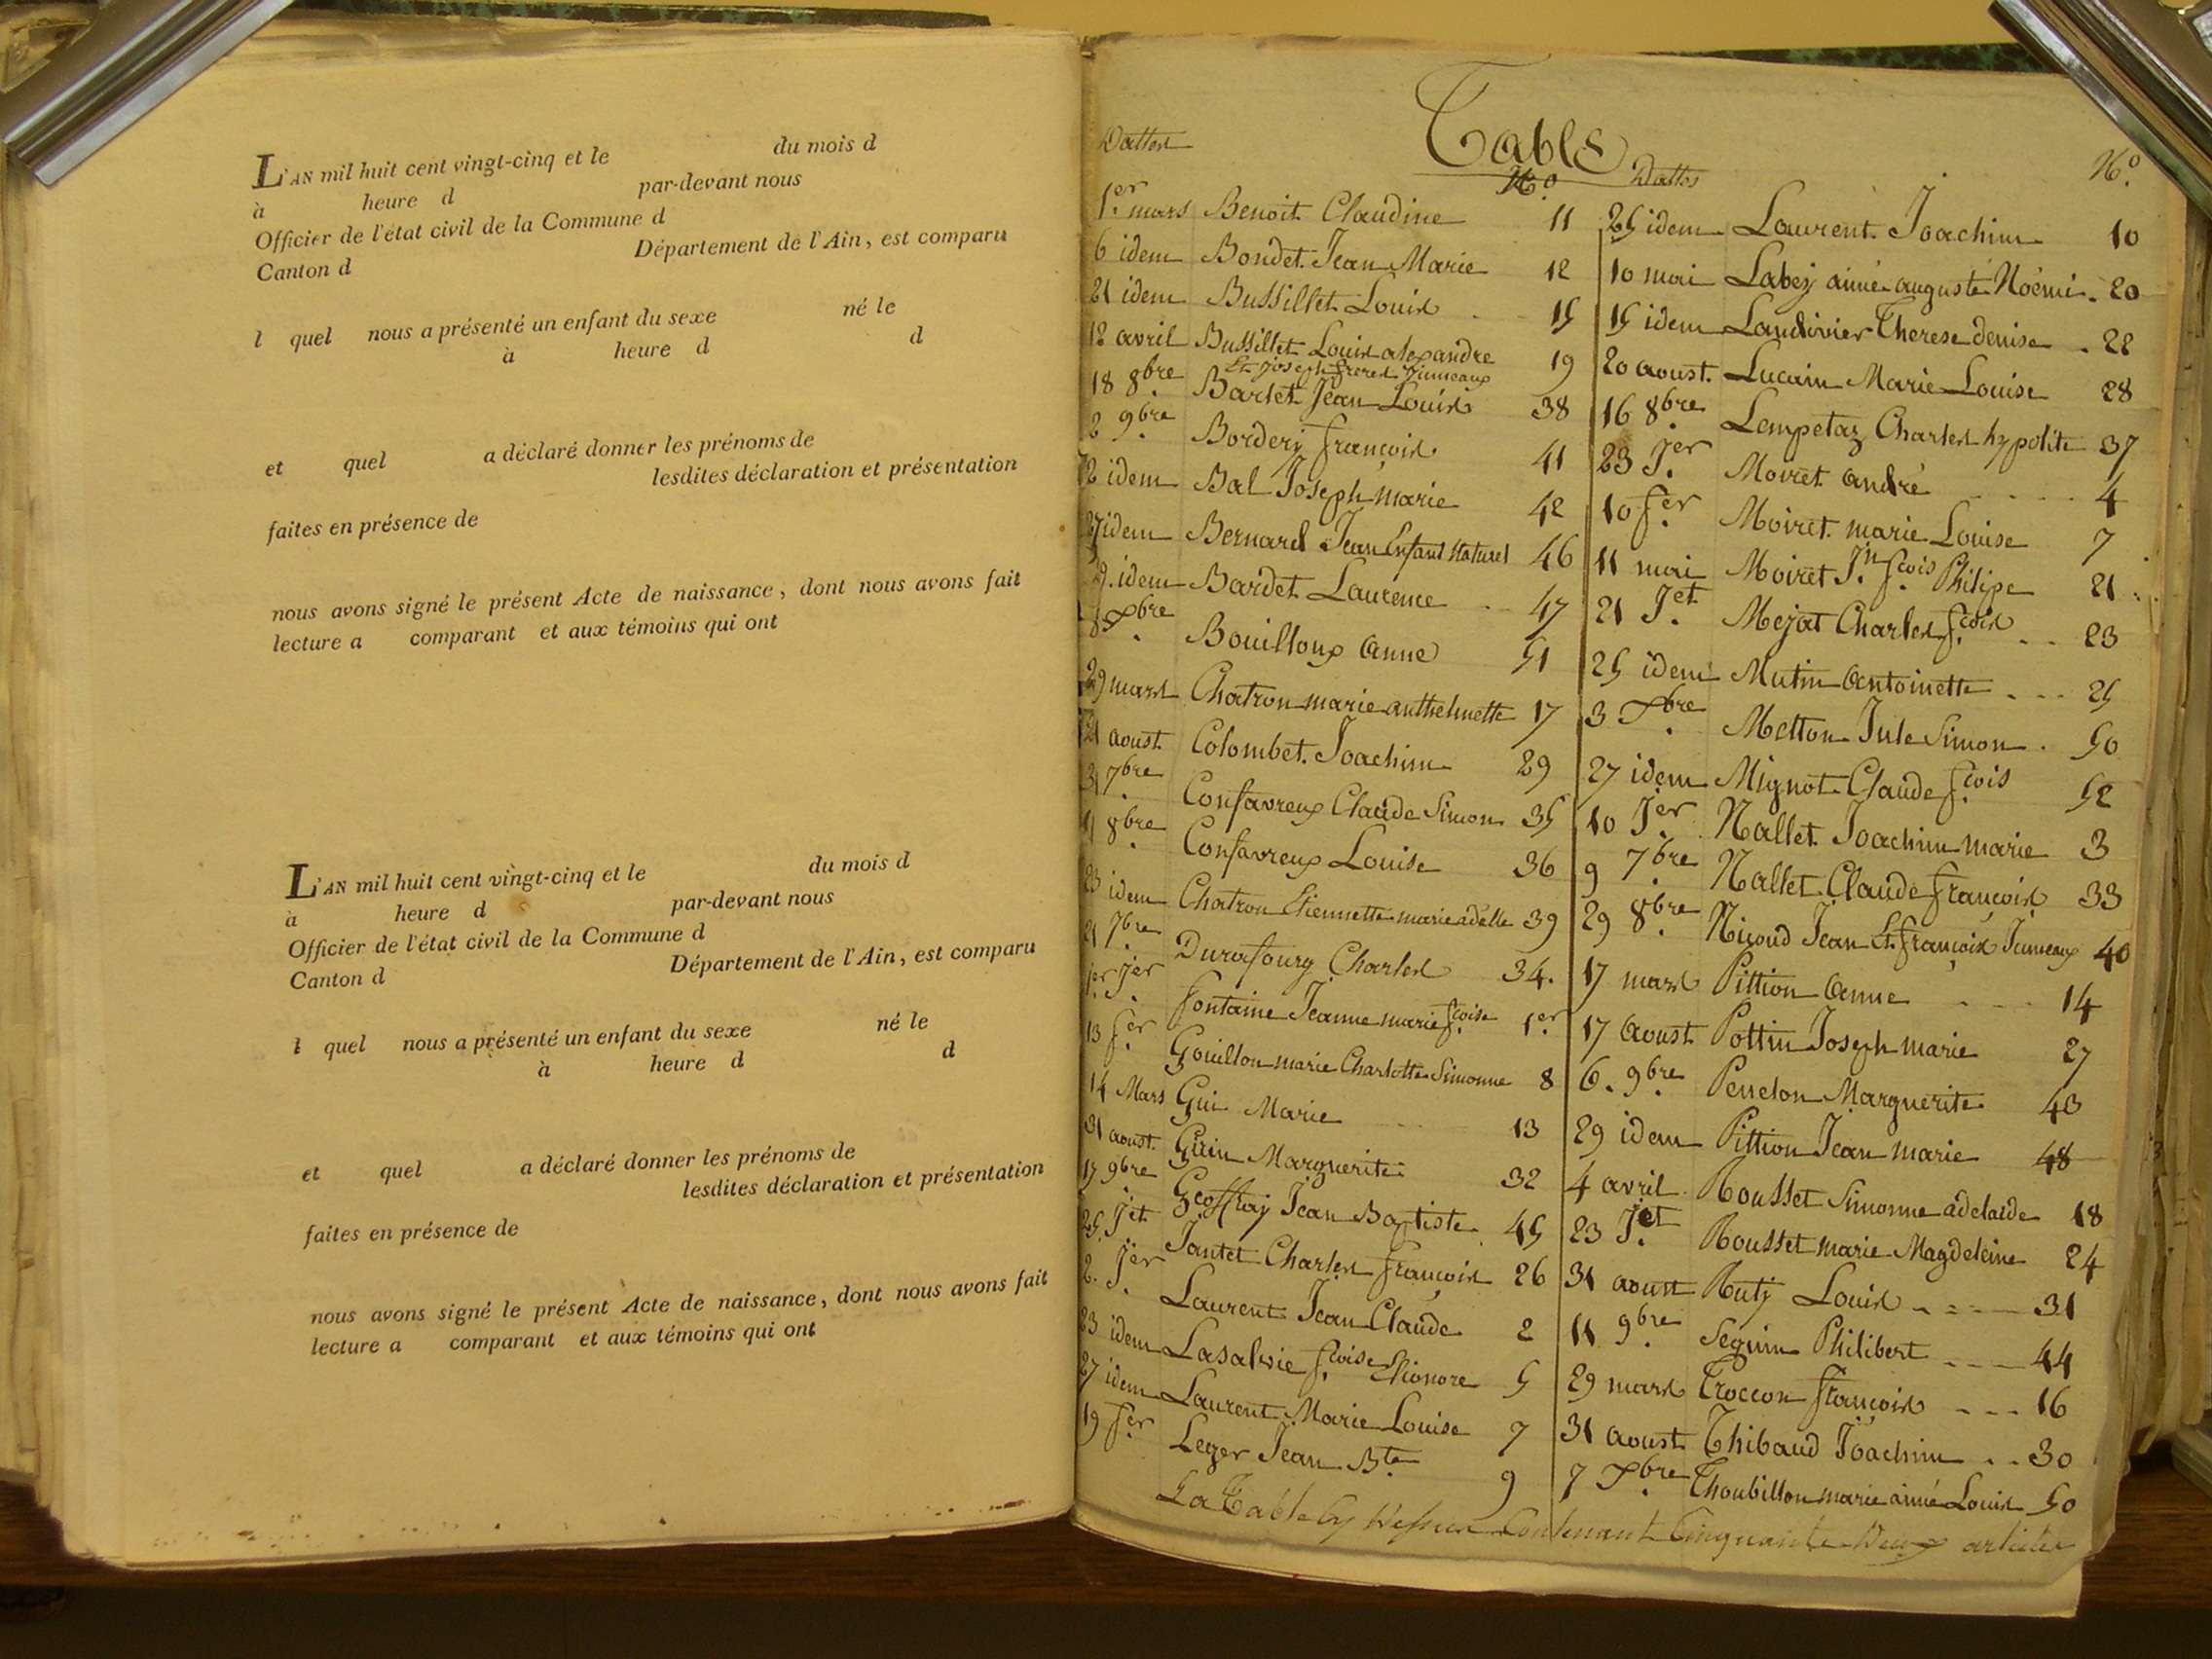 L'AN mil huit cent vingt-cinq et le du mois d
à heure d par-devant nous
Officier de l'état civil de la Commune d
Canton d Département de l'Ain, est comparu
l quel nous a présenté un enfant du sexe né le
à heure d d
et quel a déclaré donner les prénoms de
lesdites déclaration et présentation
faites en présence de
nous avons signé le présent Acte de naissance, dont nous avons fait
lecture a comparant et aux témoins qui ont
L'AN mil huit cent vingt-cinq et le du mois d
à heure d par-devant nous
Officier de l'état civil de la Commune d
Canton d Département de l'Ain, est comparu
l quel nous a présenté un enfant du sexe né le
à heure d d
et quel a déclaré donner les prénoms de
lesdites déclaration et présentation
faites en présence de
nous avons signé le présent Acte de naissance, dont nous avons fait
lecture a comparant et aux témoins qui ont
Table
Dattes N.o
1.er mars Benoit Claudine 11
6 idem Bondet Jean Marie 12
21 idem Bussillet Louis 15
12 avril Bussillet Louis alexandre 19
Et Joseph freres Jumeaux
18 8bre Barlet Jean Louis 38
2 9bre Bordery françois 41
2 idem Bal Joseph marie 42
27 idem Bernard Jean Enfant Naturel 46
29 idem Bardet Laurence 47
8 Xbre Bouilloux anne 51
29 mars Chatron marie anthelmette 17
21 aoust Colombet Joachim 29
7bre Confavreux Claude Simon 35
8bre Confavreux Louise 36
23 idem Chatron Etiennette marie adelle 39
21 7bre Durafourg Charles 34.
1.er Jer fontaine Jeanne marie fcoise 1er
13 fer Gouillon marie Charlotte Simonne 8
14 Mars Gui Marie 13
31 aoust Guin Marguerite 32
9bre Geoffray Jean Baptiste 45
25 Jet Jantet Charles françois 26
2. Jer Laurent Jean Claude 2
23 idem Lasalvie fcoise Elionore 5
27 idem Laurent Marie Louise 7
19 fer Leger Jean Bte 9
Dattes N.o
25 idem Laurent Joachim 10
10 mai Labey aimé auguste Noémi 20
15 idem Landivier Therese denise 22
20 aoust Lucain Marie Louise 28
16 8bre Lempetaz Charles hypolite 37
23 Jer Moiret andré 4
10 fer Moiret marie Louise 7
11 mai Moiret Jn fcois Philipe 21
21 Jet Mejat Charles fcois 23
25 idem Mutin Antoinette 25
3 Xbre Metton Jule Simon 50
27 idem Mignot Claude fcois 52
10 Jer Nallet Joachim marie 3
9 7bre Nallet Claude françois 33
29 8bre Nicoud Jean Et françois Jumeaux 40
17 mars Pittion anne 14
17 Aoust Pottin Joseph marie 27
6. 9bre Perrelon Marguerite 43
29 idem Pittion Jean marie 48
4 avril Rousset Simonne adelaide 18
23 Jet Rousset marie Magdeleine 24
31 aoust Ruty Louis 31
11 9bre Seguin Philibert 44
29 mars Troccon françois 16
31 aoust Thibaud Joachim 30
7 Xbre Thoubillon marie aimé Louis 50
La Table Cy Dessus Contenant Cinquante Deux articles